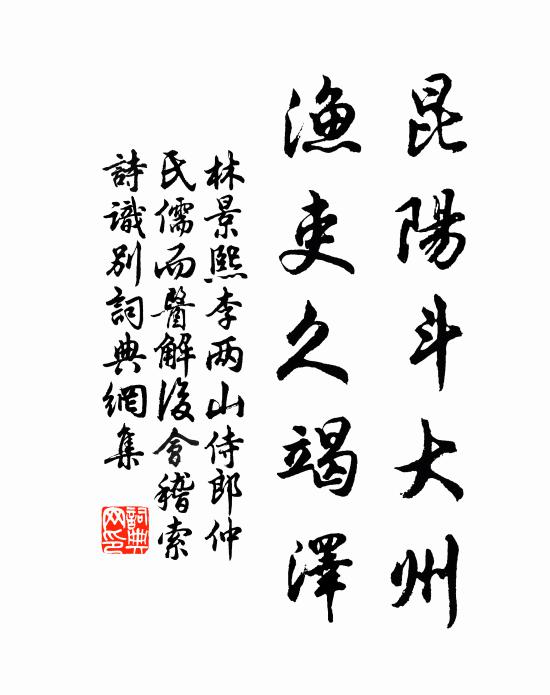 昆陽斗大州
漁吏久竭澤
林景熙李两山侍郎仲
氏儒而醫解後會稽索
詩識别詞典網集
詞典
网印